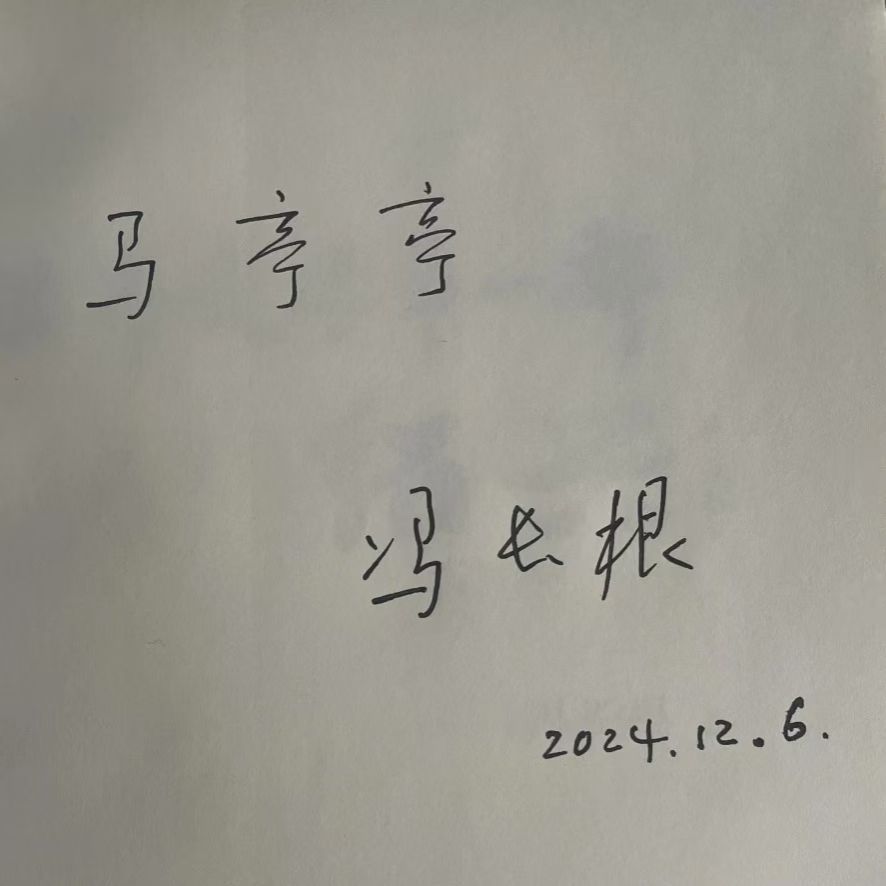 马亭亭
冯长根
2024.12.6.